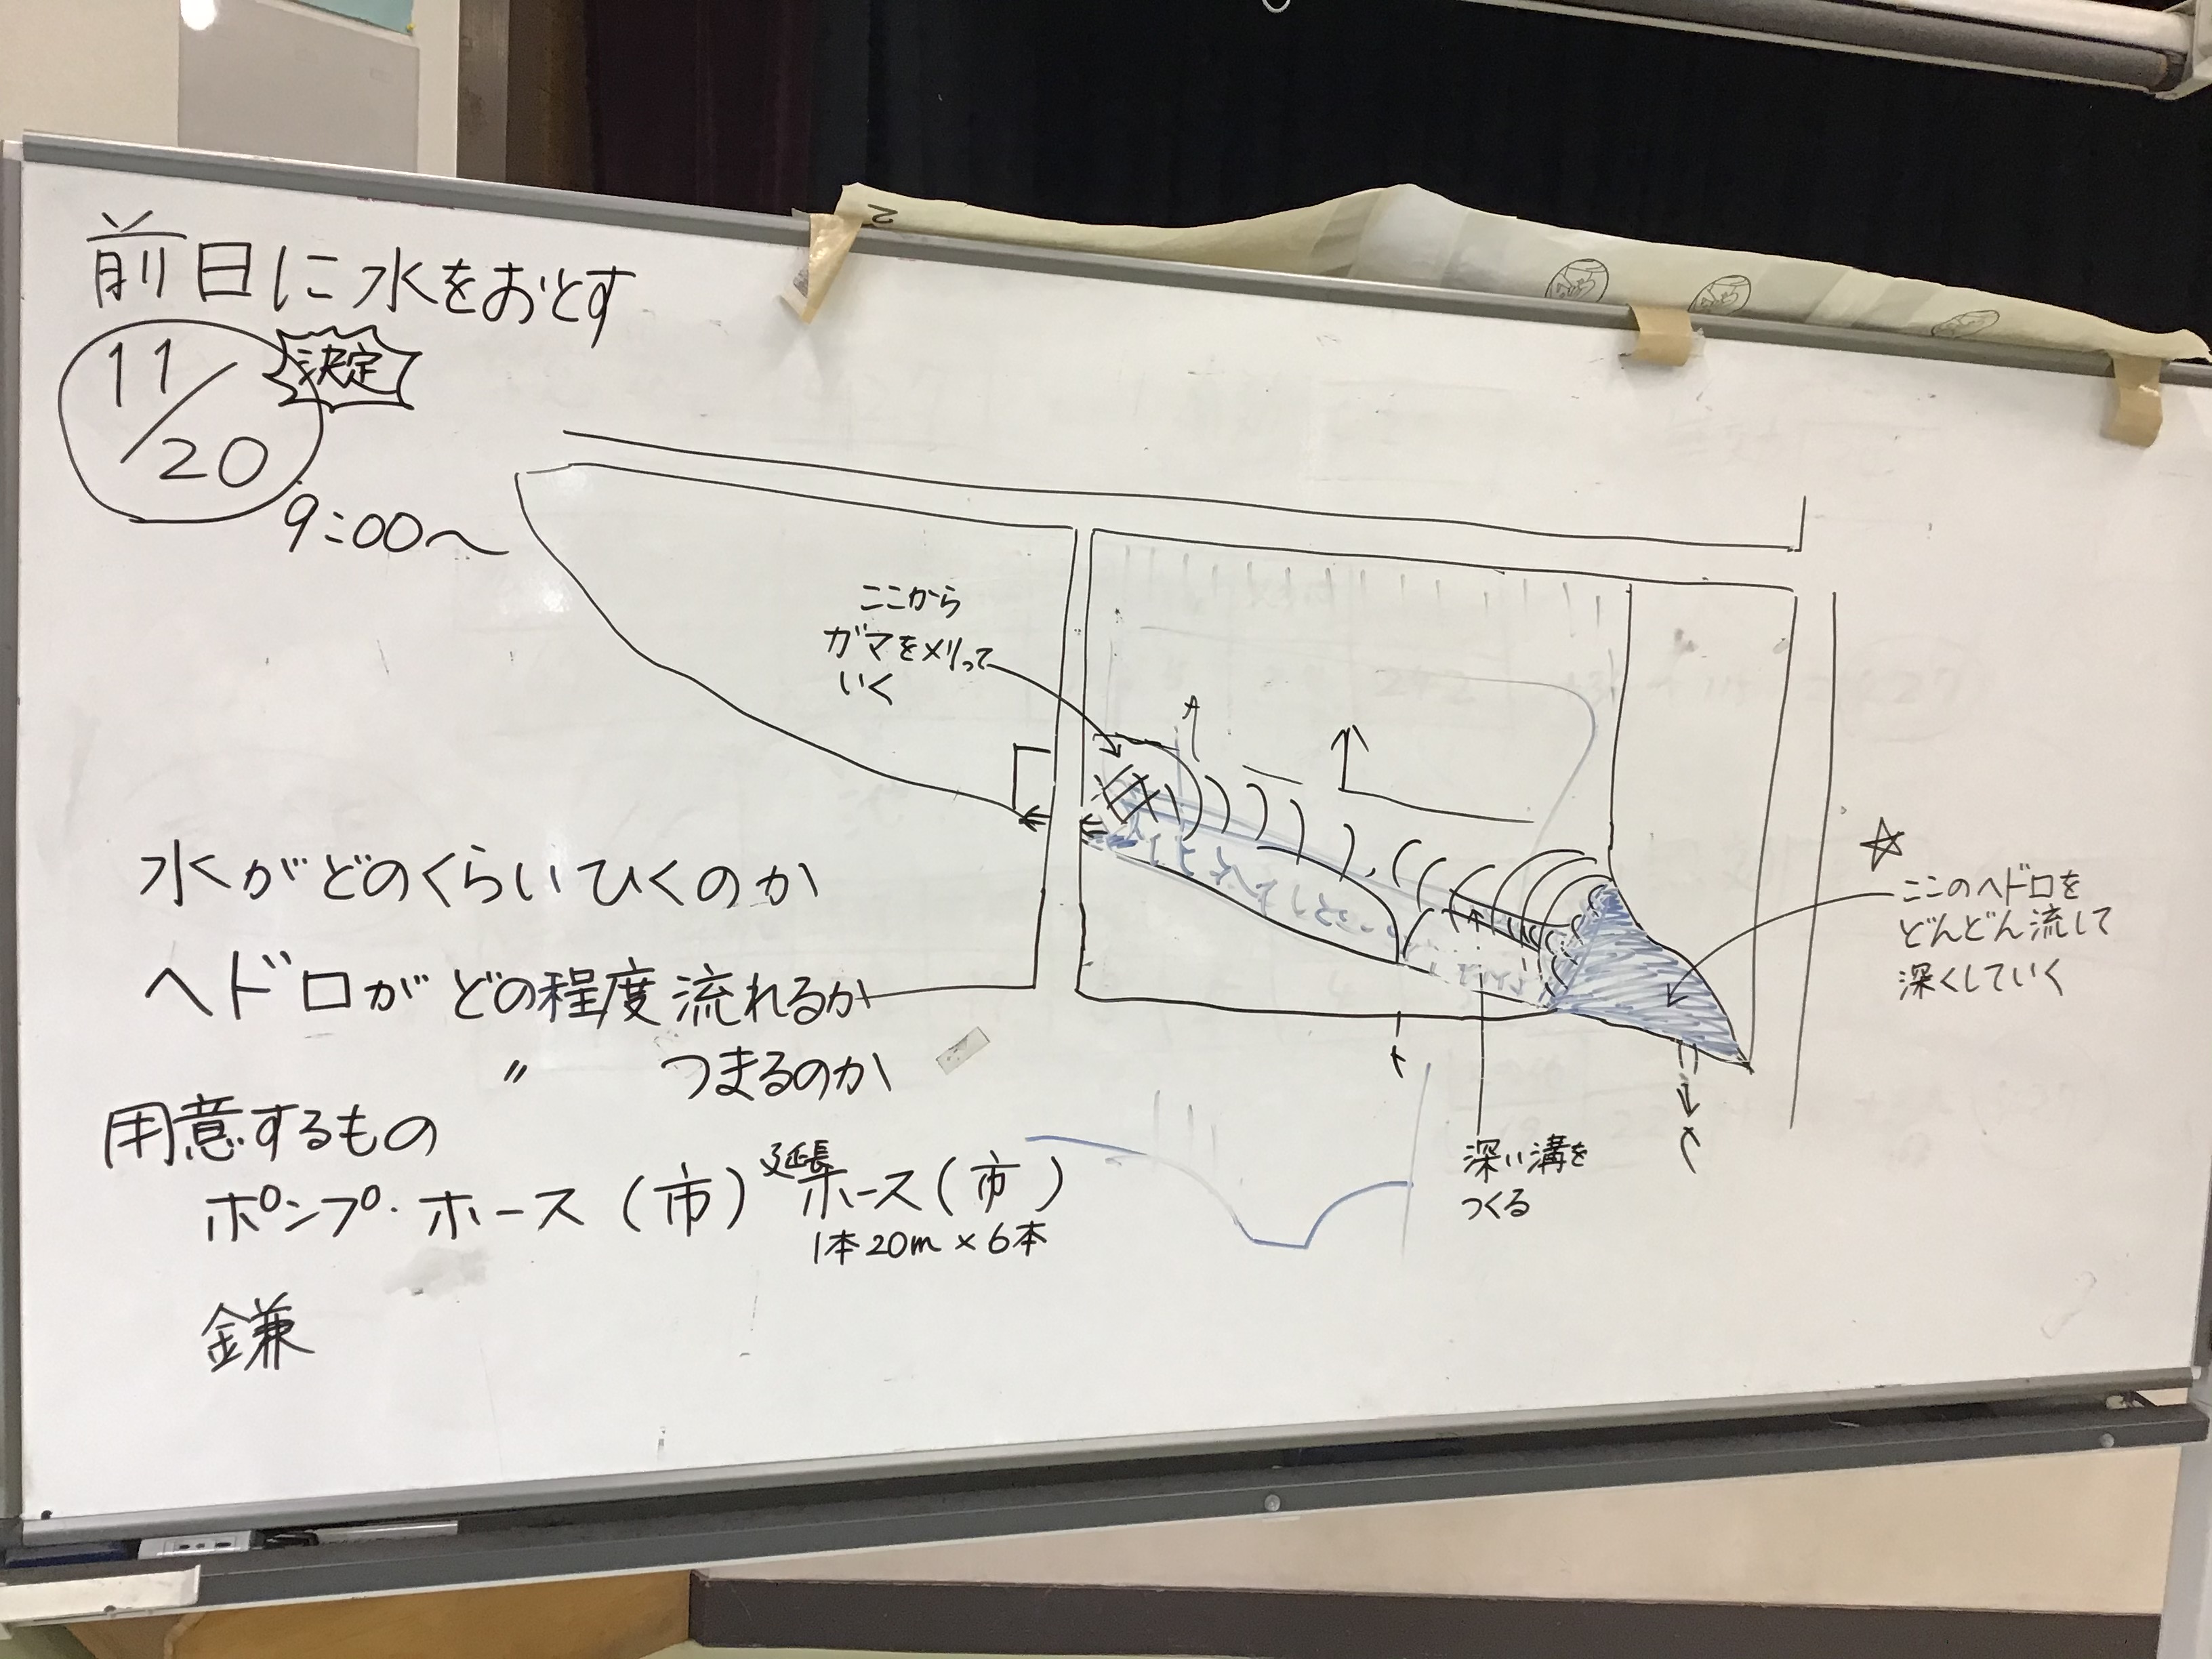 前日に水をおとす
11/20 決定
9:00〜
ここから
ガマを刈って
いく
水がどのくらいひくのか
ヘドロがどの程度流れるか
〃 つまるのか
用意するもの
ポンプ・ホース(市) 延長ホース(市)
1本20m×6本
鎌
☆
ここのヘドロを
どんどん流して
深くしていく
深い溝を
つくる